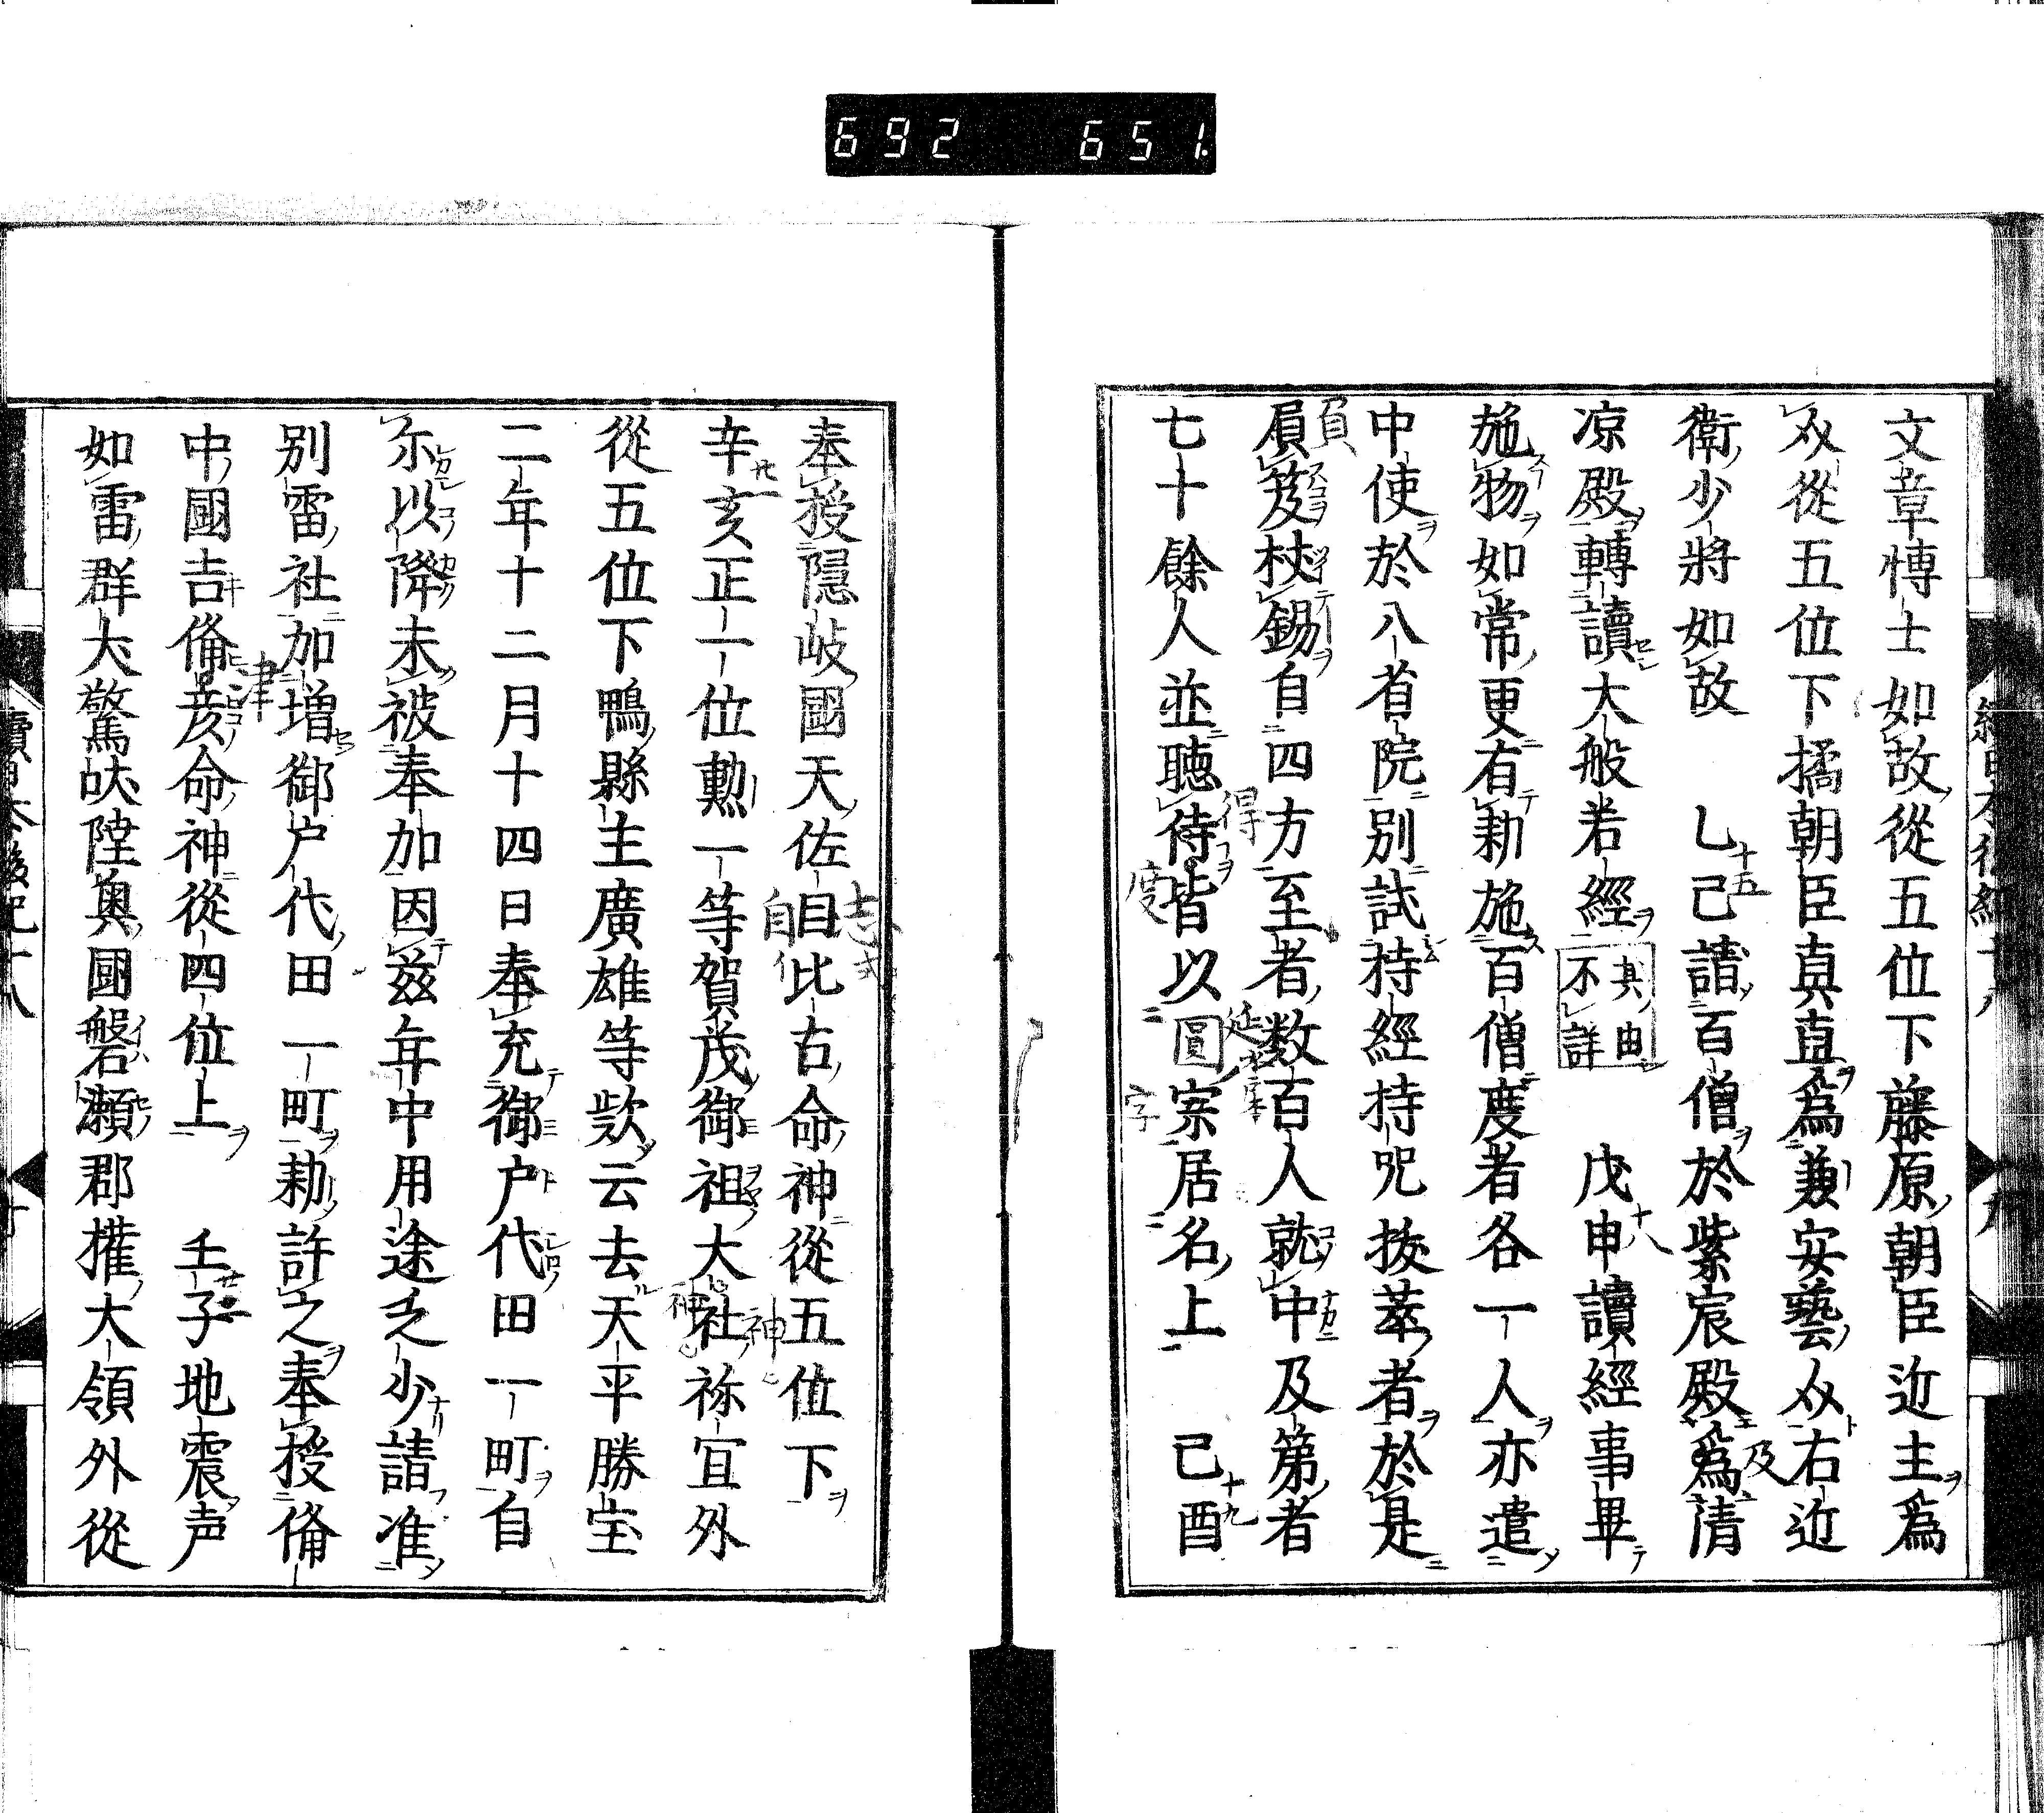 692 651.
文章博士如故從五位下藤原朝臣近主爲
介從五位下橘朝臣真直爲兼安藝介右近
衛少將如故 乙巳請百僧於紫宸殿爲清
涼殿轉讀大般若經其由不詳 戊申讀經事畢
施物如常更有勅施百僧度者各一人亦遣
中使於八省院別試持經持呪抜萃者於是
屓笈杖錫自四方至者数百人就中及第者
七十餘人並聴待皆以圓家居名上 己酉
奉授隱岐國天佐自比古命神從五位下
辛亥正一位勲一等賀茂御祖大社祢宜外
從五位下鴨縣主廣雄等欵云去天平勝宝
二年十二月十四日奉充御户代田一町自
尓以降未被奉加因茲年中用途乏少請准
別雷社加増御户代田一町勅許之奉授俻
中國吉俻彦命神從四位上 壬子地震声
如雷群犬驚吠陸奥國磐瀬郡權大領外從